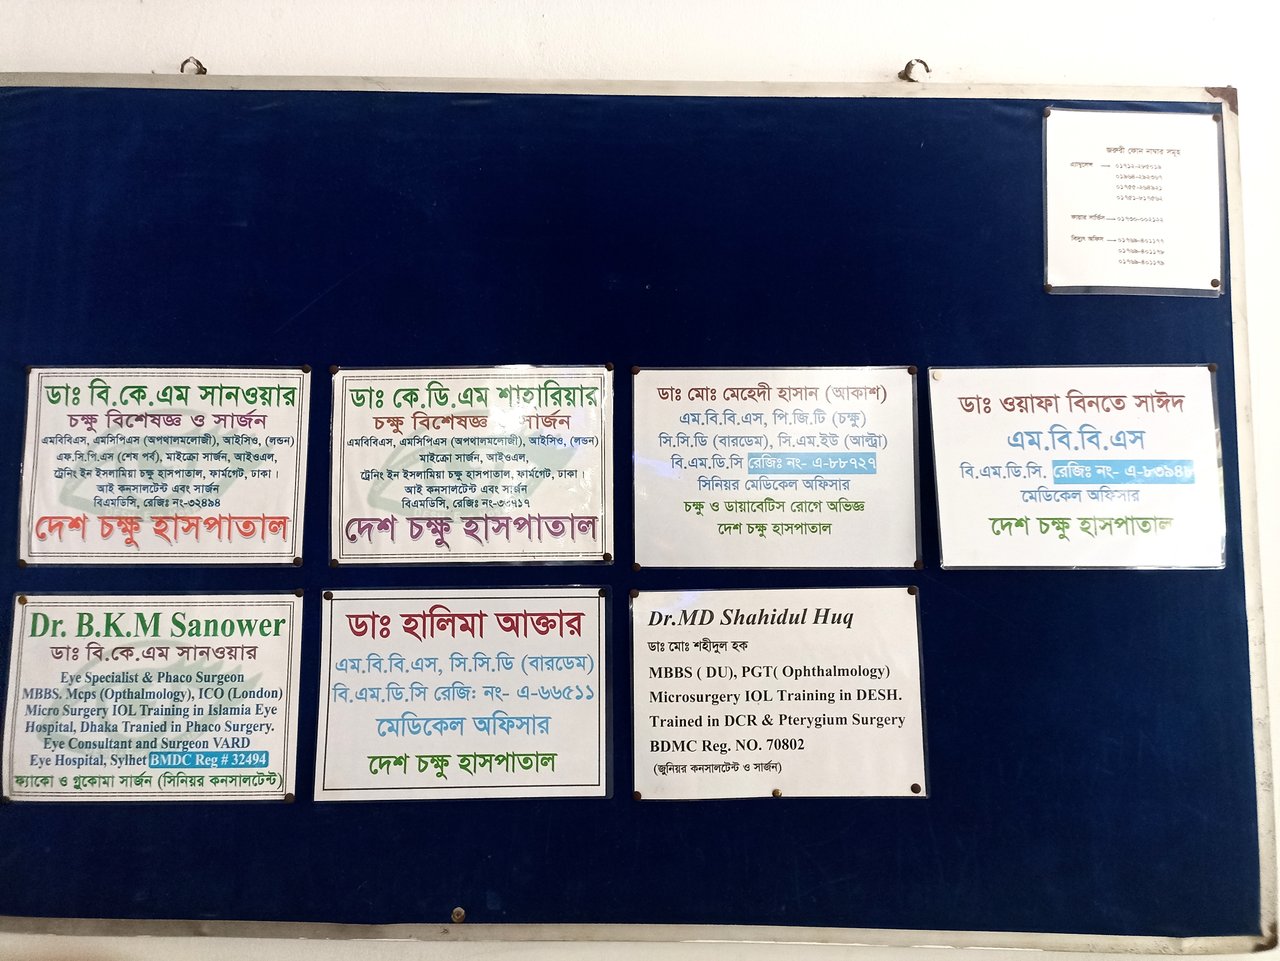 জরুরী ফোন নাম্বার সমূহ
০১৭১২-২৮৫০১৯
০১৯৬৪-২৯২৩৬৭
০১৭৫৫-২৬৪৯২১
০১৭৫১-৮১৭৫৬২
ফায়ার সার্ভিস — ০১৭৩০-০০২১২২
বিদ্যুৎ অফিস — ০১৭৬৯-৪০১১৭৭
০১৭৬৯-৪০১১৭৮
০১৭৬৯-৪০১১৭৯
ডাঃ বি.কে.এম সানওয়ার
চক্ষু বিশেষজ্ঞ ও সার্জন
এমবিবিএস, এমসিপিএস (অপথালমলোজী), আইসিও, (লন্ডন)
এফ.সি.পি.এস (শেষ পর্ব), মাইক্রো সার্জন, আইওএল,
ট্রেনিং ইন ইসলামিয়া চক্ষু হাসপাতাল, ফার্মগেট, ঢাকা।
আই কনসালটেন্ট এবং সার্জন
বিএমডিসি, রেজিঃ নং-৩২৪৯৪
দেশ চক্ষু হাসপাতাল
ডাঃ কে.ডি.এম শাহারিয়ার
চক্ষু বিশেষজ্ঞ ও সার্জন
এমবিবিএস, এমসিপিএস (অপথালমলোজী), আইসিও, (লন্ডন)
মাইক্রো সার্জন, আইওএল,
ট্রেনিং ইন ইসলামিয়া চক্ষু হাসপাতাল, ফার্মগেট, ঢাকা।
আই কনসালটেন্ট এবং সার্জন
বিএমডিসি, রেজিঃ
দেশ চক্ষু হাসপাতাল
ডাঃ মোঃ মেহেদী হাসান (আকাশ)
এম.বি.বি.এস, পি.জি.টি (চক্ষু)
সি.সি.ডি (বারডেম), সি.এম.ইউ (আল্ট্রা)
বি.এম.ডি.সি রেজিঃ নং- এ-৮৮৭২৭
সিনিয়র মেডিকেল অফিসার
চক্ষু ও ডায়াবেটিস রোগে অভিজ্ঞ
দেশ চক্ষু হাসপাতাল
ডাঃ ওয়াফা বিনতে সাঈদ
এম.বি.বি.এস
বি.এম.ডি.সি. রেজিঃ নং- এ-৮৩৯৪৮
মেডিকেল অফিসার
দেশ চক্ষু হাসপাতাল
Dr. B.K.M Sanower
ডাঃ বি.কে.এম সানওয়ার
Eye Specialist & Phaco Surgeon
MBBS. Mcps (Opthalmology), ICO (London)
Micro Surgery IOL Training in Islamia Eye
Hospital, Dhaka Tranied in Phaco Surgery.
Eye Consultant and Surgeon VARD
Eye Hospital, Sylhet BMDC Reg # 32494
ফ্যাকো ও গ্লুকোমা সার্জন (সিনিয়র কনসালটেন্ট)
ডাঃ হালিমা আক্তার
এম.বি.বি.এস, সি.সি.ডি (বারডেম)
বি.এম.ডি.সি রেজি: নং- এ-৬৬৫১১
মেডিকেল অফিসার
দেশ চক্ষু হাসপাতাল
Dr.MD Shahidul Huq
ডাঃ মোঃ শহীদুল হক
MBBS ( DU), PGT( Ophthalmology)
Microsurgery IOL Training in DESH.
Trained in DCR & Pterygium Surgery
BDMC Reg. NO. 70802
(জুনিয়র কনসালটেন্ট ও সার্জন)